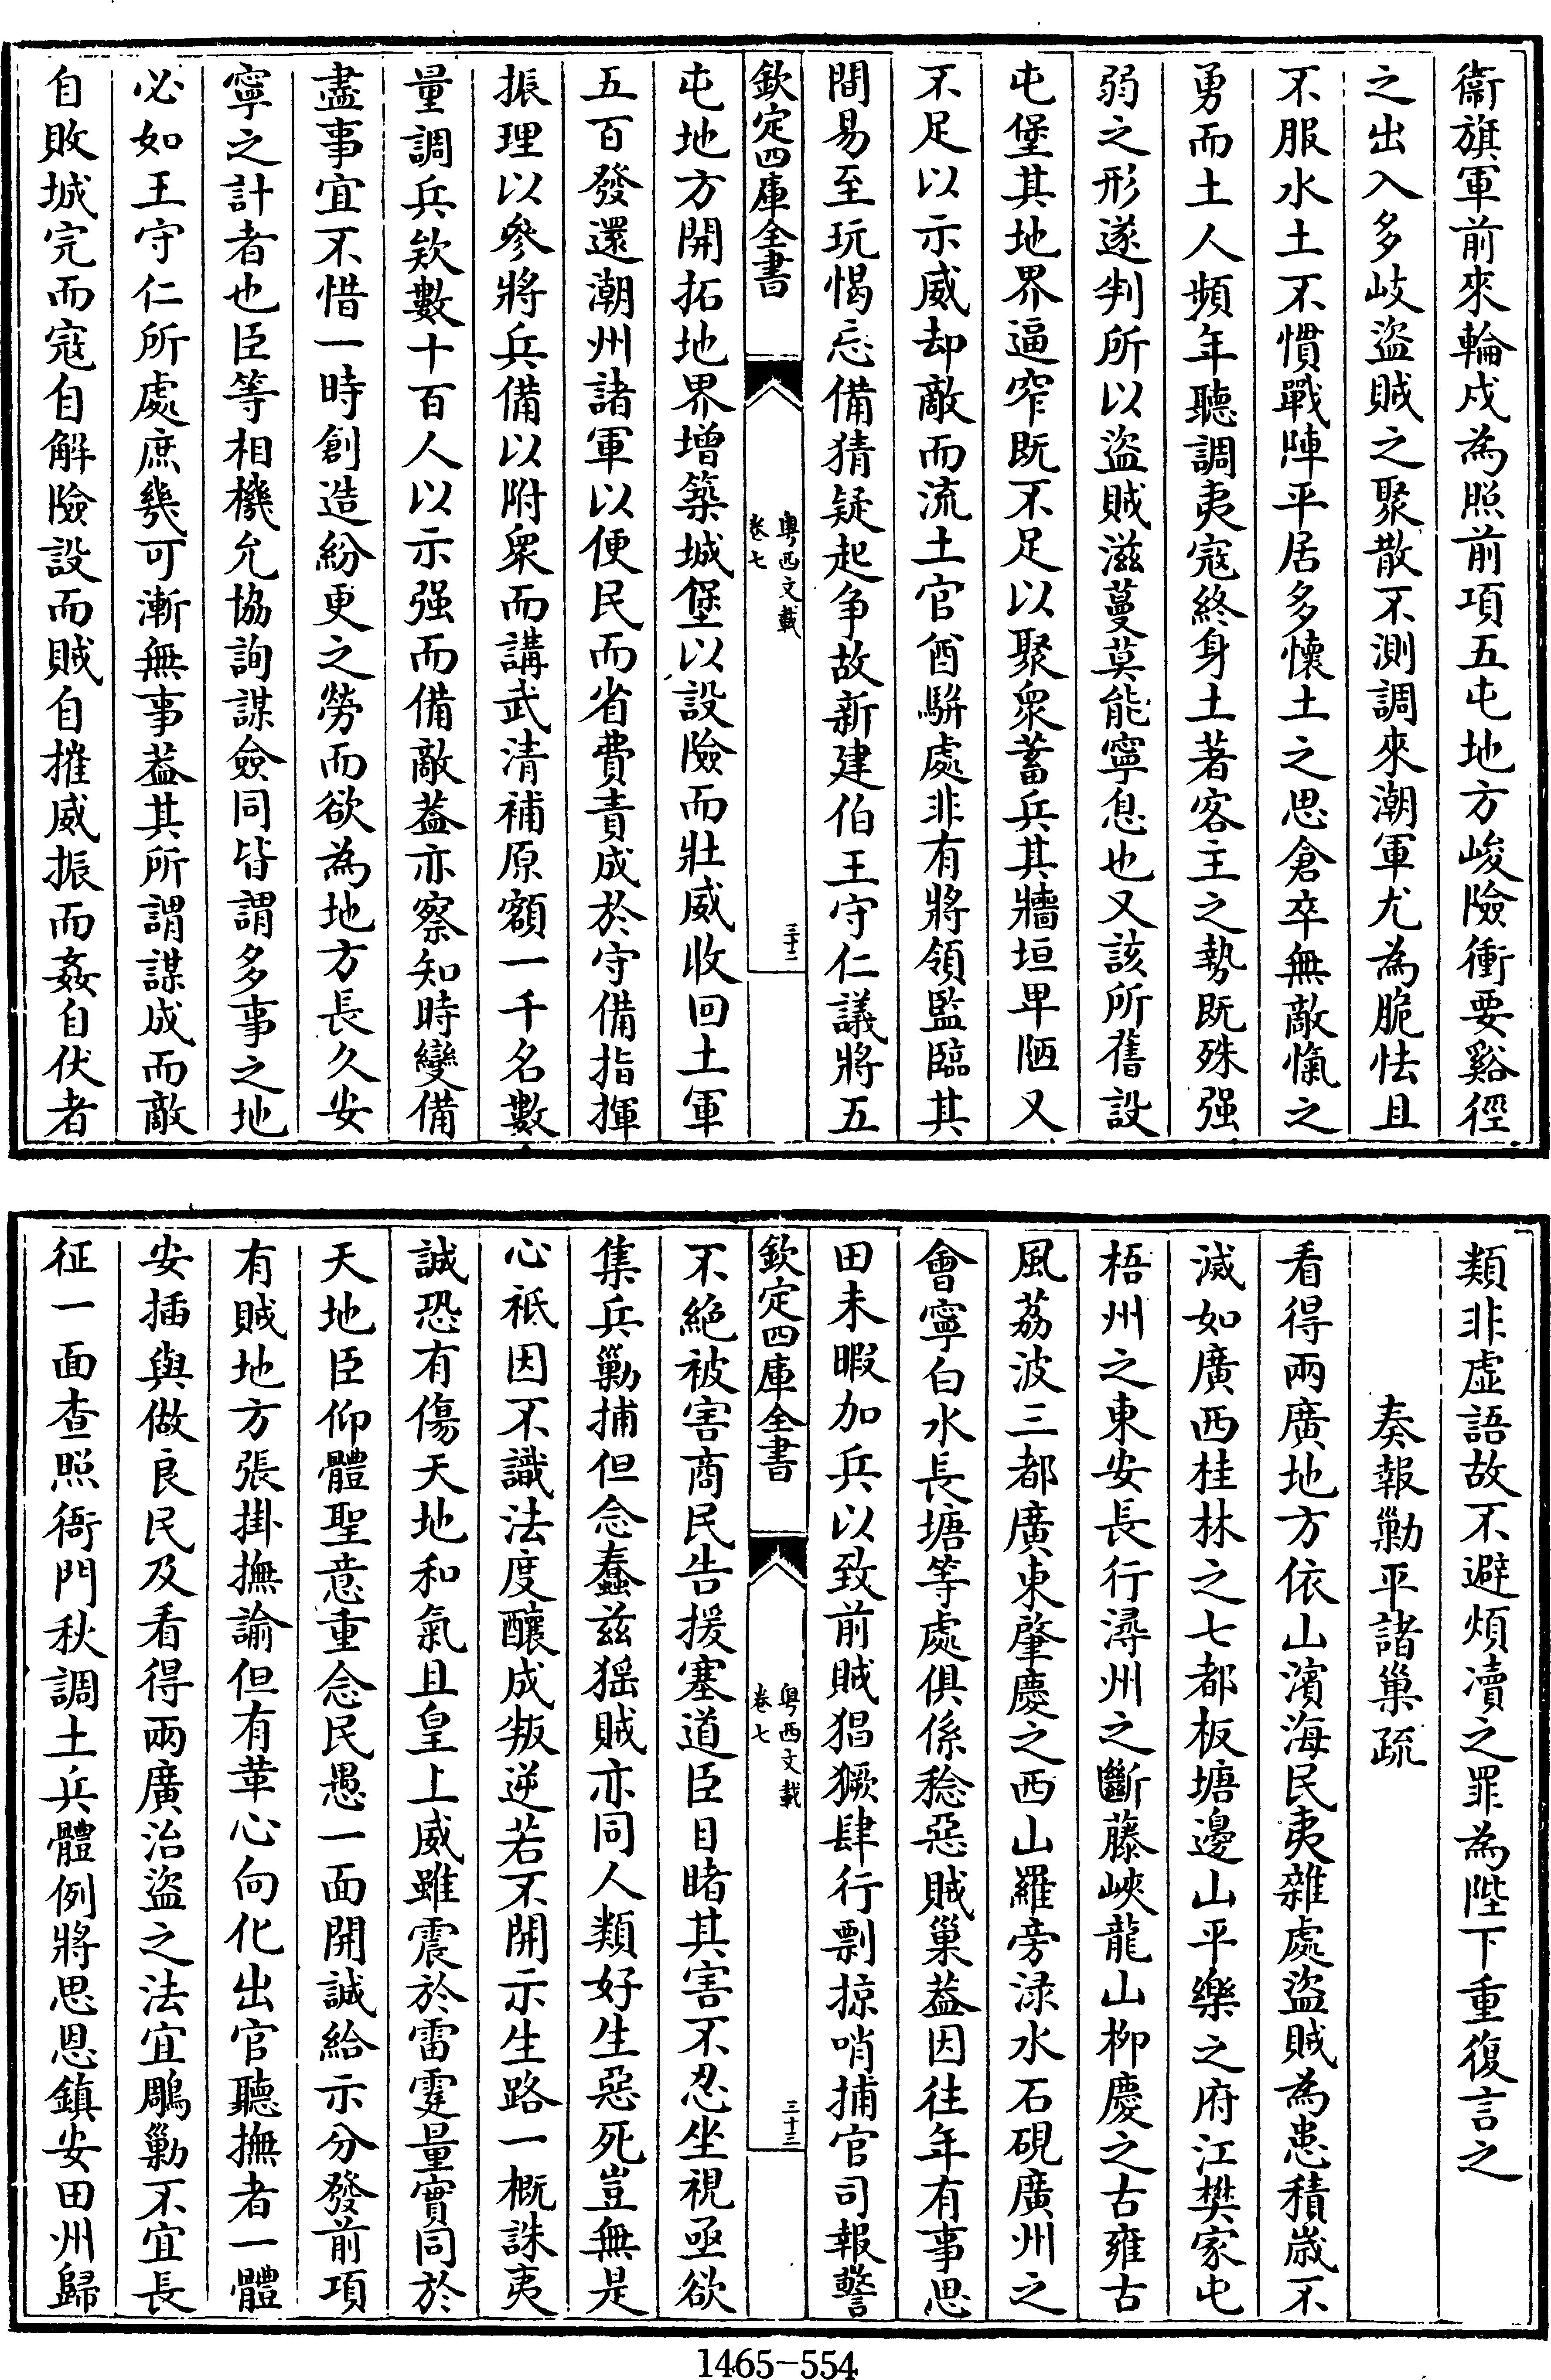 衞旗軍前來輪戍為照前項五屯地方峻險衝要谿徑
之出入多岐盜賊之聚散不測調來潮軍尤為脆怯且
不服水土不慣戰陣平居多懷土之思倉卒無敵愾之
勇而土人頻年聽調夷寇終身土著客主之勢既殊强
弱之形遂判所以盜賊滋蔓莫能寧息也又該所舊設
屯堡其地界逼窄既不足以聚衆蓄兵其牆垣卑陋又
不足以示威却敵而流土官酋駢處非有將領監臨其
間易至玩愒忘備猜疑起爭故新建伯王守仁議將五
欽定四庫全書
粤西文載
卷七
三十二
屯地方開拓地界增築城堡以設險而壯威收回土軍
五百發還潮州諸軍以便民而省費責成於守備指揮
振理以參將兵備以附衆而講武清補原額一千名數
量調兵欵數十百人以示强而備敵蓋亦察知時變備
盡事宜不惜一時創造紛更之勞而欲為地方長久安
寧之計者也臣等相機允協詢謀僉同皆謂多事之地
必如王守仁所處庶幾可漸無事葢其所謂謀成而敵
自敗城完而寇自解險設而賊自摧威振而姦自伏者
類非虛語故不避煩瀆之罪為陛下重復言之
奏報勦平諸巢疏
看得兩廣地方依山濱海民夷雜處盜賊為患積歲不
滅如廣西桂林之七都板塘邊山平樂之府江樊家屯
梧州之東安長行潯州之斷藤峽龍山柳慶之古雍古
風荔波三都廣東肇慶之西山羅旁渌水石硯廣州之
會寧白水長塘等處俱係稔惡賊巢葢因往年有事思
田未暇加兵以致前賊猖獗肆行剽掠哨捕官司報警
欽定四庫全書
粤西文載
卷七
三十三
不絶被害商民告援塞道臣目睹其害不忍坐視亟欲
集兵勦捕但念蠢兹猺賊亦同人類好生惡死豈無是
心祗因不識法度釀成叛逆若不開示生路一概誅夷
誠恐有傷天地和氣且皇上威雖震於雷霆量實同於
天地臣仰體聖意重念民愚一面開誠給示分發前項
有賊地方張掛撫諭但有革心向化出官聽撫者一體
安插與做良民及看得兩廣治盜之法宜鵰勦不宜長
征一面查照衙門秋調土兵體例將思恩鎮安田州歸
1465-554